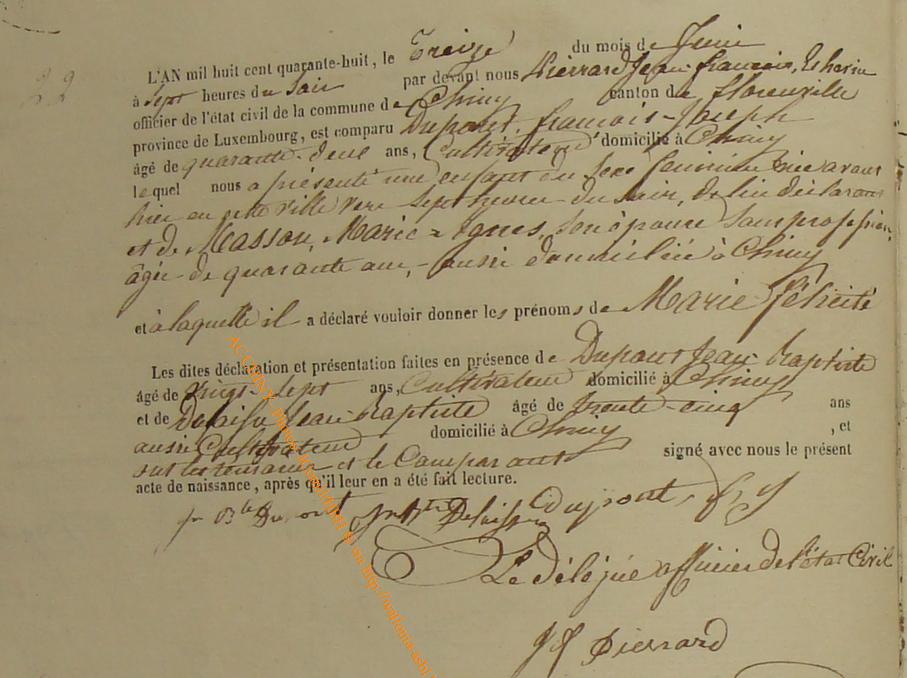 L'AN mil huit cent quarante-huit, le Treize du mois de Juin
à Sept heures du Soir par devant nous Pierrard Jean françois, Echevin
officier de l'état civil de la commune de Chiny canton de florenville
province de Luxembourg, est comparu Dupont, françois-Joseph
âgé de quarante-deux ans, Cultivateur domicilié à Chiny
lequel nous a présenté une enfant du Sexe féminin née avant
hier en cette ville vers Sept heures du Soir, de lui déclarant
et de Masson, Marie-Agnes, Son épouse Sans profession,
âgée de quarante ans, aussi domiciliée à Chiny
et à laquelle il a déclaré vouloir donner les prénoms de Marie félicité
Les dites déclaration et présentation faites en présence de Dupont Jean-Baptiste
âgé de Vingt-Sept ans, Cultivateur domicilié à Chiny
et de Delaisse Jean-Baptiste âgé de trente-cinq ans
aussi Cultivateur domicilié à Chiny , et
ont les témoins et le Comparant signé avec nous le présent
acte de naissance, après qu'il leur en a été fait lecture.
Bte Dupont Delaisse Dupont, f J
Le délégué officier de l'état Civil
J f Pierrard